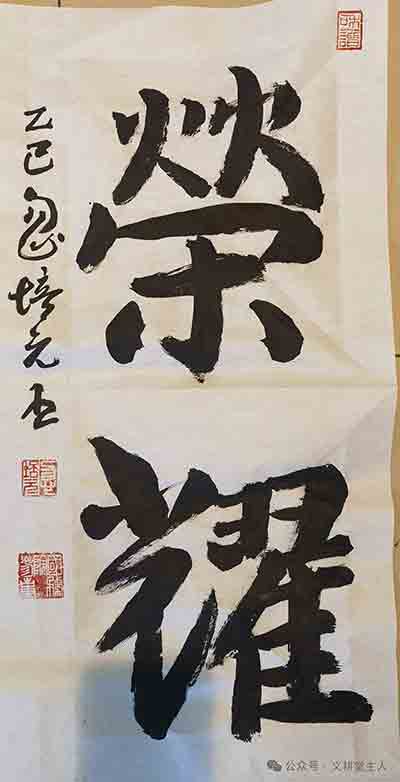 榮耀
乙巳忽培元
公众号 · 文耕堂主人